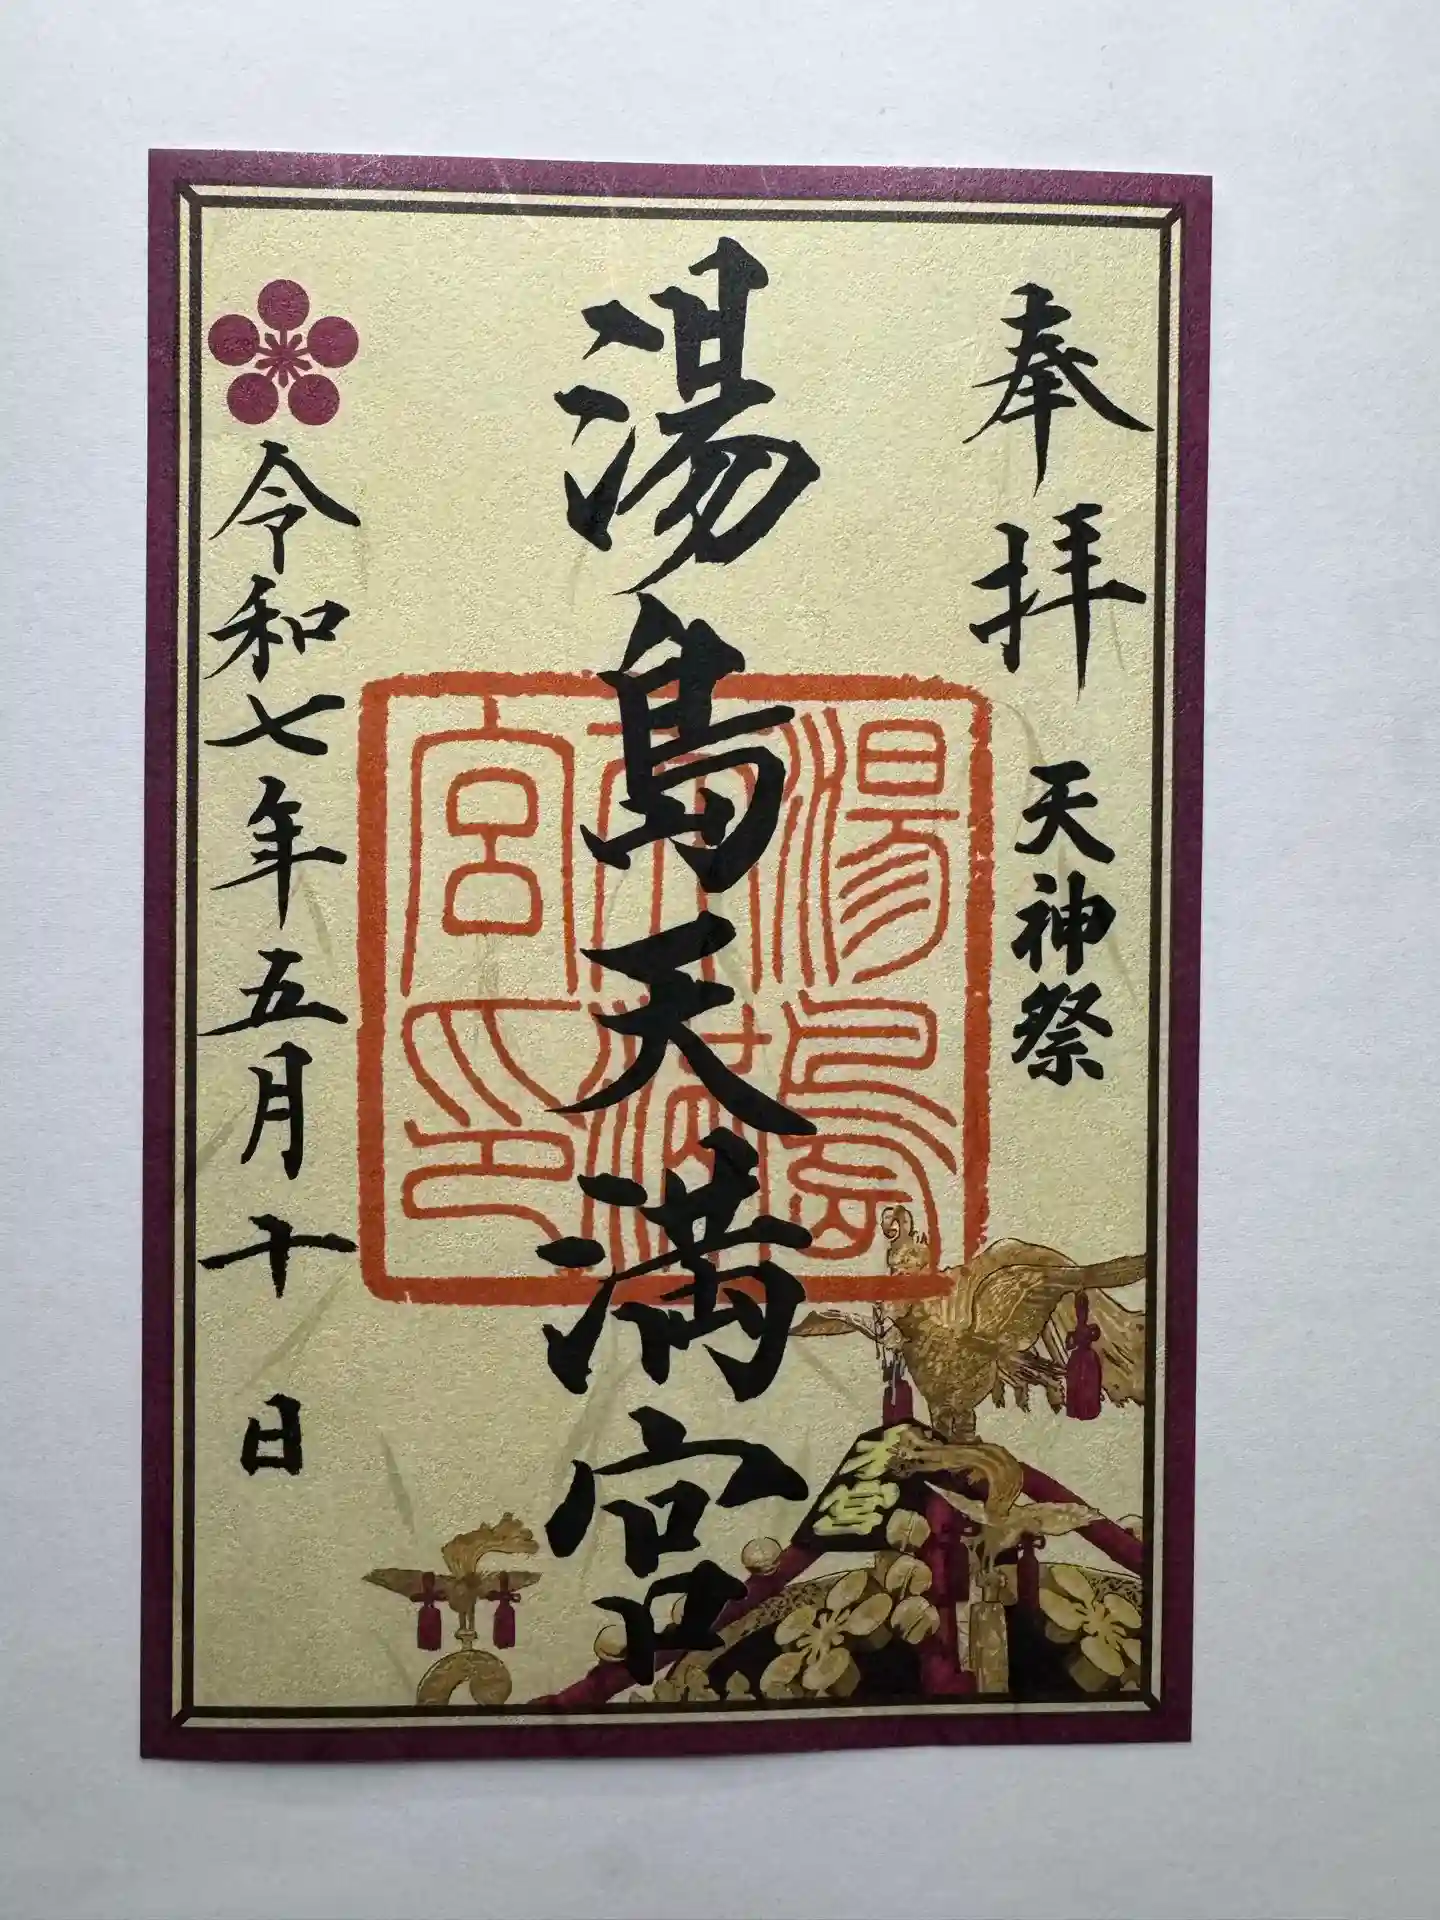 奉拝 天神祭
湯島天満宮
令和七年五月十日
湯島天満宮印
本宮